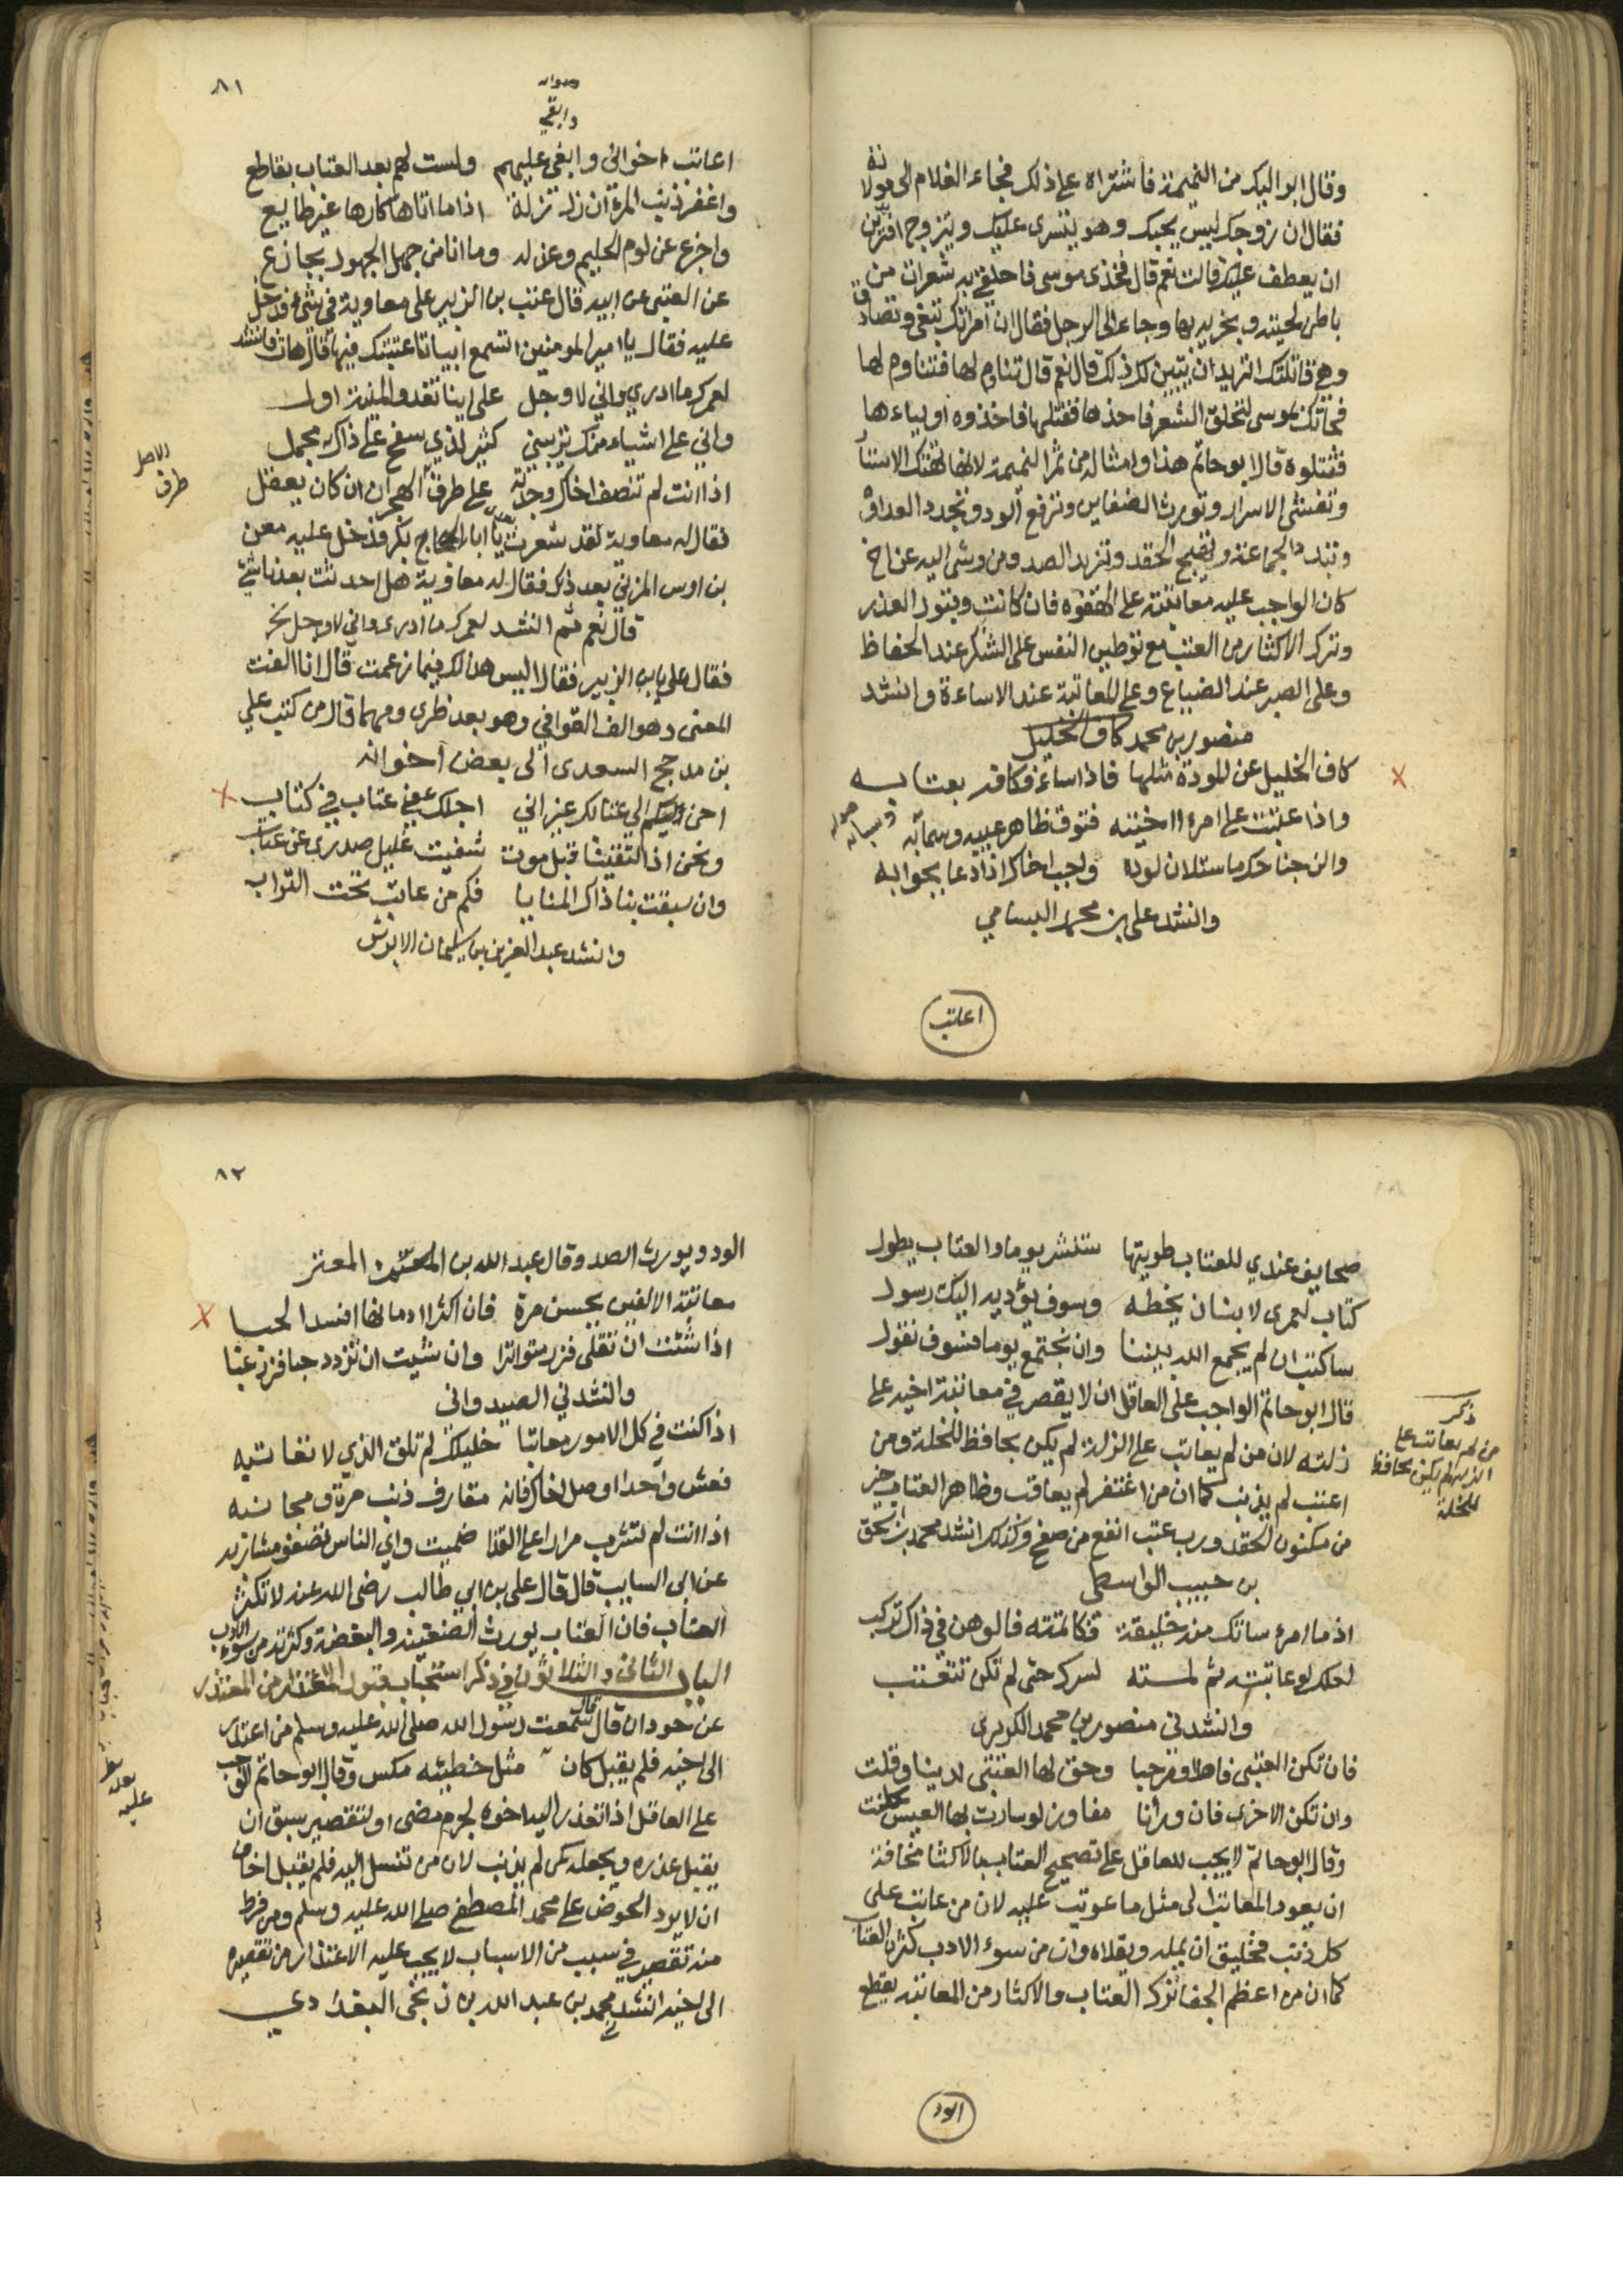 وقال ابو اليك من النميمة فاشتراه على ذلك فجاء الغلام الى مولاته
فقال ان زوجك ليس يحبك وهو يتسرى عليك ويتزوج افتريدين
ان يعطف عليك قالت نعم قال فخذي موسى فاحلقي به شعرات من
باطن لحيته وبخريه بها وجاء الى الرجل فقال ان امراتك تبغي وتصادق
وهي قاتلتك اتريد ان يتبين لك ذلك قال نعم قال تناوم لها فتناوم لها
فجاءتك بموسى لتحلق الشعر فاخذها فقتلها فاخذوه اولياءها
فقتلوه قال ابو حاتم هذا وامثاله من ثمر النميمة لانها تهتك الاستار
وتفشي الاسرار وتورث الضغاين وترفع الود وتجدد العداوة
وتبدد الجماعة وتهيج الحقد وتزيد الصد ومن وشى اليه عن اخ
كان الواجب عليه معاتبته على الهفوه فان كانت وبتول العذر
وترك الاكثار من العتب مع توطين النفس على الشكر عند الحفاظ
وعلى الصبر عند الضياع وعلى المعاتبة عند الاساءة وانشد
منصور بن محمد كاف الخليل
كاف الخليل عن المودة مثلها فاذا ساء فكافه بعتابه
واذا عتبت على امرء احببته فتوق ظاهر عيبه وسبابه
والن جناحك ما ستلان لوده واجب اخاك اذا دعا بجوابه
وانشد على بن محمد البسامي
اعاتب
٨١
صوابه
وابقي
اعاتب اخواني وابغي عليهم ولست لهم بعد العتاب بقاطع
واغفر ذنب المرء ان زل زلة اذا ما اتاها كارها غير طايع
واجزع من لوم الحليم وعذله وما انا من جهل الجهول بجازع
عن العتبي عن ابيه قال عتب بن الزبير على معاوية في شيء فدخل
عليه فقال يا امير المومنين اتسمع ابياتا عتبتك فيها قال هات فانشد
لعمرك ما ادري واني لاوجل على اينا تغدو المنية اول
واني على اشياء منك تريبني كثير لذي سفح على ذاك مجمل
اذا انت لم تنصف اخاك وجدته على طرف الهجران ان كان يعقل
الاصل
طرف
فقال له معاوية لقد شعرت يا ابا بكر فدخل عليه معن
بن اوس المزني بعد ذلك فقال له معاوية هل احدثت بعدنا شي
قال نعم ثم انشد لعمرك ما ادري واني لاوجل نخ
فقال علي بابن الزبير فقال اليس هذا لك فيما زعمت قال انا الفت
المعنى وهو الف القوافي وهو بعد ظري ومهما قال من كتب علي
بن مدحج السعدى الى بعض اخوانه
احن اليكم الى عتابكم غير اني اجلك عن عتاب في كتاب
ونحن اذا التقينا قبل موت شفيت غليل صدري من عتاب
وان سبقت بنا ذاك المنايا فكم من عاتب تحت التراب
وانشد عبد العزيز بن سليمان الابرش
صحايف عندي للعتاب طويتها ستنشر يوما والعتاب يطول
كتاب لعمرى لا بنان يخطه وسوف يؤديه اليك رسول
ساكتب ان لم يجمع الله بيننا وان نجتمع يوما فسوف نقول
قال ابو حاتم الواجب على العاقل ان لا يقصر في معاتبة اخيه على
زلته لان من لم يعاتب على الزلة لم يكن بحافظ للخلة ومن
اعتب لم يذنب كما ان من اغتفر لم يعاقب وظاهر العتاب خير
من مكنون الحقد ورب عتب انفع من صفح وكذلك انشد محمد بن اسحق
بن حبيب الواسطي
ذكر
من لم يعاتب على
الزلة لم يكن بحافظ
للخلة
اذ ما امرء ساتك منه خليقة فكاتمته فالوهن في ذاك تركب
لعلك لو عاتبته ثم لمسته لسرك حتى لم تكن تتعتب
وانشدني منصور بن محمد الكريزى
فان تكن العتبى فاهلا ومرحبا وحق لها العتبى لدينا وقلت
وان تكن الاخرى فان ورائنا مفاوز لو سارت بها العيس كلت
وقال ابو حاتم لا يجب للعاقل على تصحيح العتاب بالاكثار مخافة
ان يعود المعاتب الى مثل ما عوتب عليه لان من عاتب على
كل ذنب فخليق ان يمله ويقلاه وان من سوء الادب كثرة العتاب
كما ان من اعظم الجفا ترك العتاب والاكثار من المعاتبة يقطع
الود
٨٢
الود ويورث الصد وقال عبد الله بن المعتز
معاتبة الالفين يحسن مرة فان اكثرا ادمانها افسد الحبا
اذا شئت ان تقلى فزر متواترا وان شيت ان تزدد حبا فزر غبا
وانشدني الصيدواني
اذا كنت في كل الامور معاتبا خليلك لم تلق الذي لا تعاتبه
فعش واحدا او صل اخاك فانه مقارف ذنب مرة ومجانبه
اذا انت لم تشرب مرارا على القذا ظميت واي الناس تصفو مشاربه
عن ابي السايب قال قال علي بن ابي طالب رضى الله عنه لا تكثر
العتاب فان العتاب يورث الضغينه والبغضة وكثرته من سوء الادب
الباب الثانى والثلاثون في ذكر استحباب قبول الاعتذار من المعتذر
عن جودان قال سمعت رسول الله صلى الله عليه وسلم من اعتذر
الى اخيه فلم يقبل كان مثل خطيئه مكس وقال ابو حاتم الواجب
على العاقل اذا تعذر اليه اخوه لجرم مضى او لتقصير سبق ان
يقبل عذره ويجعله كمن لم يذنب لان من تنسل اليه فلم يقبل اخاف
ان لا يرد الحوض على محمد المصطفى صلى الله عليه وسلم ومن فرط
منه تقصير في سبب من الاسباب لا يجب عليه الاعتذار من تقصيره
الى اخيه انشد محمد بن عبد الله بن زنجى البغدادي